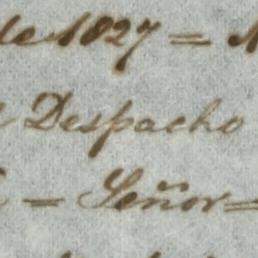 de 1827 =
Despacho
= Señor =